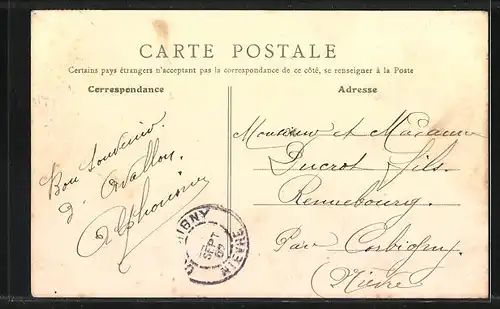 CARTE POSTALE
Certains pays étrangers n'acceptant pas la correspondance de ce côté, se renseigner à la Poste
Correspondance
Adresse
Bon Souvenir
d'Avallon.
Alphonsine
Monsieur et Madame
Ducrot fils.
Rennebourg.
Par Corbigny.
(Nièvre)
SEPT